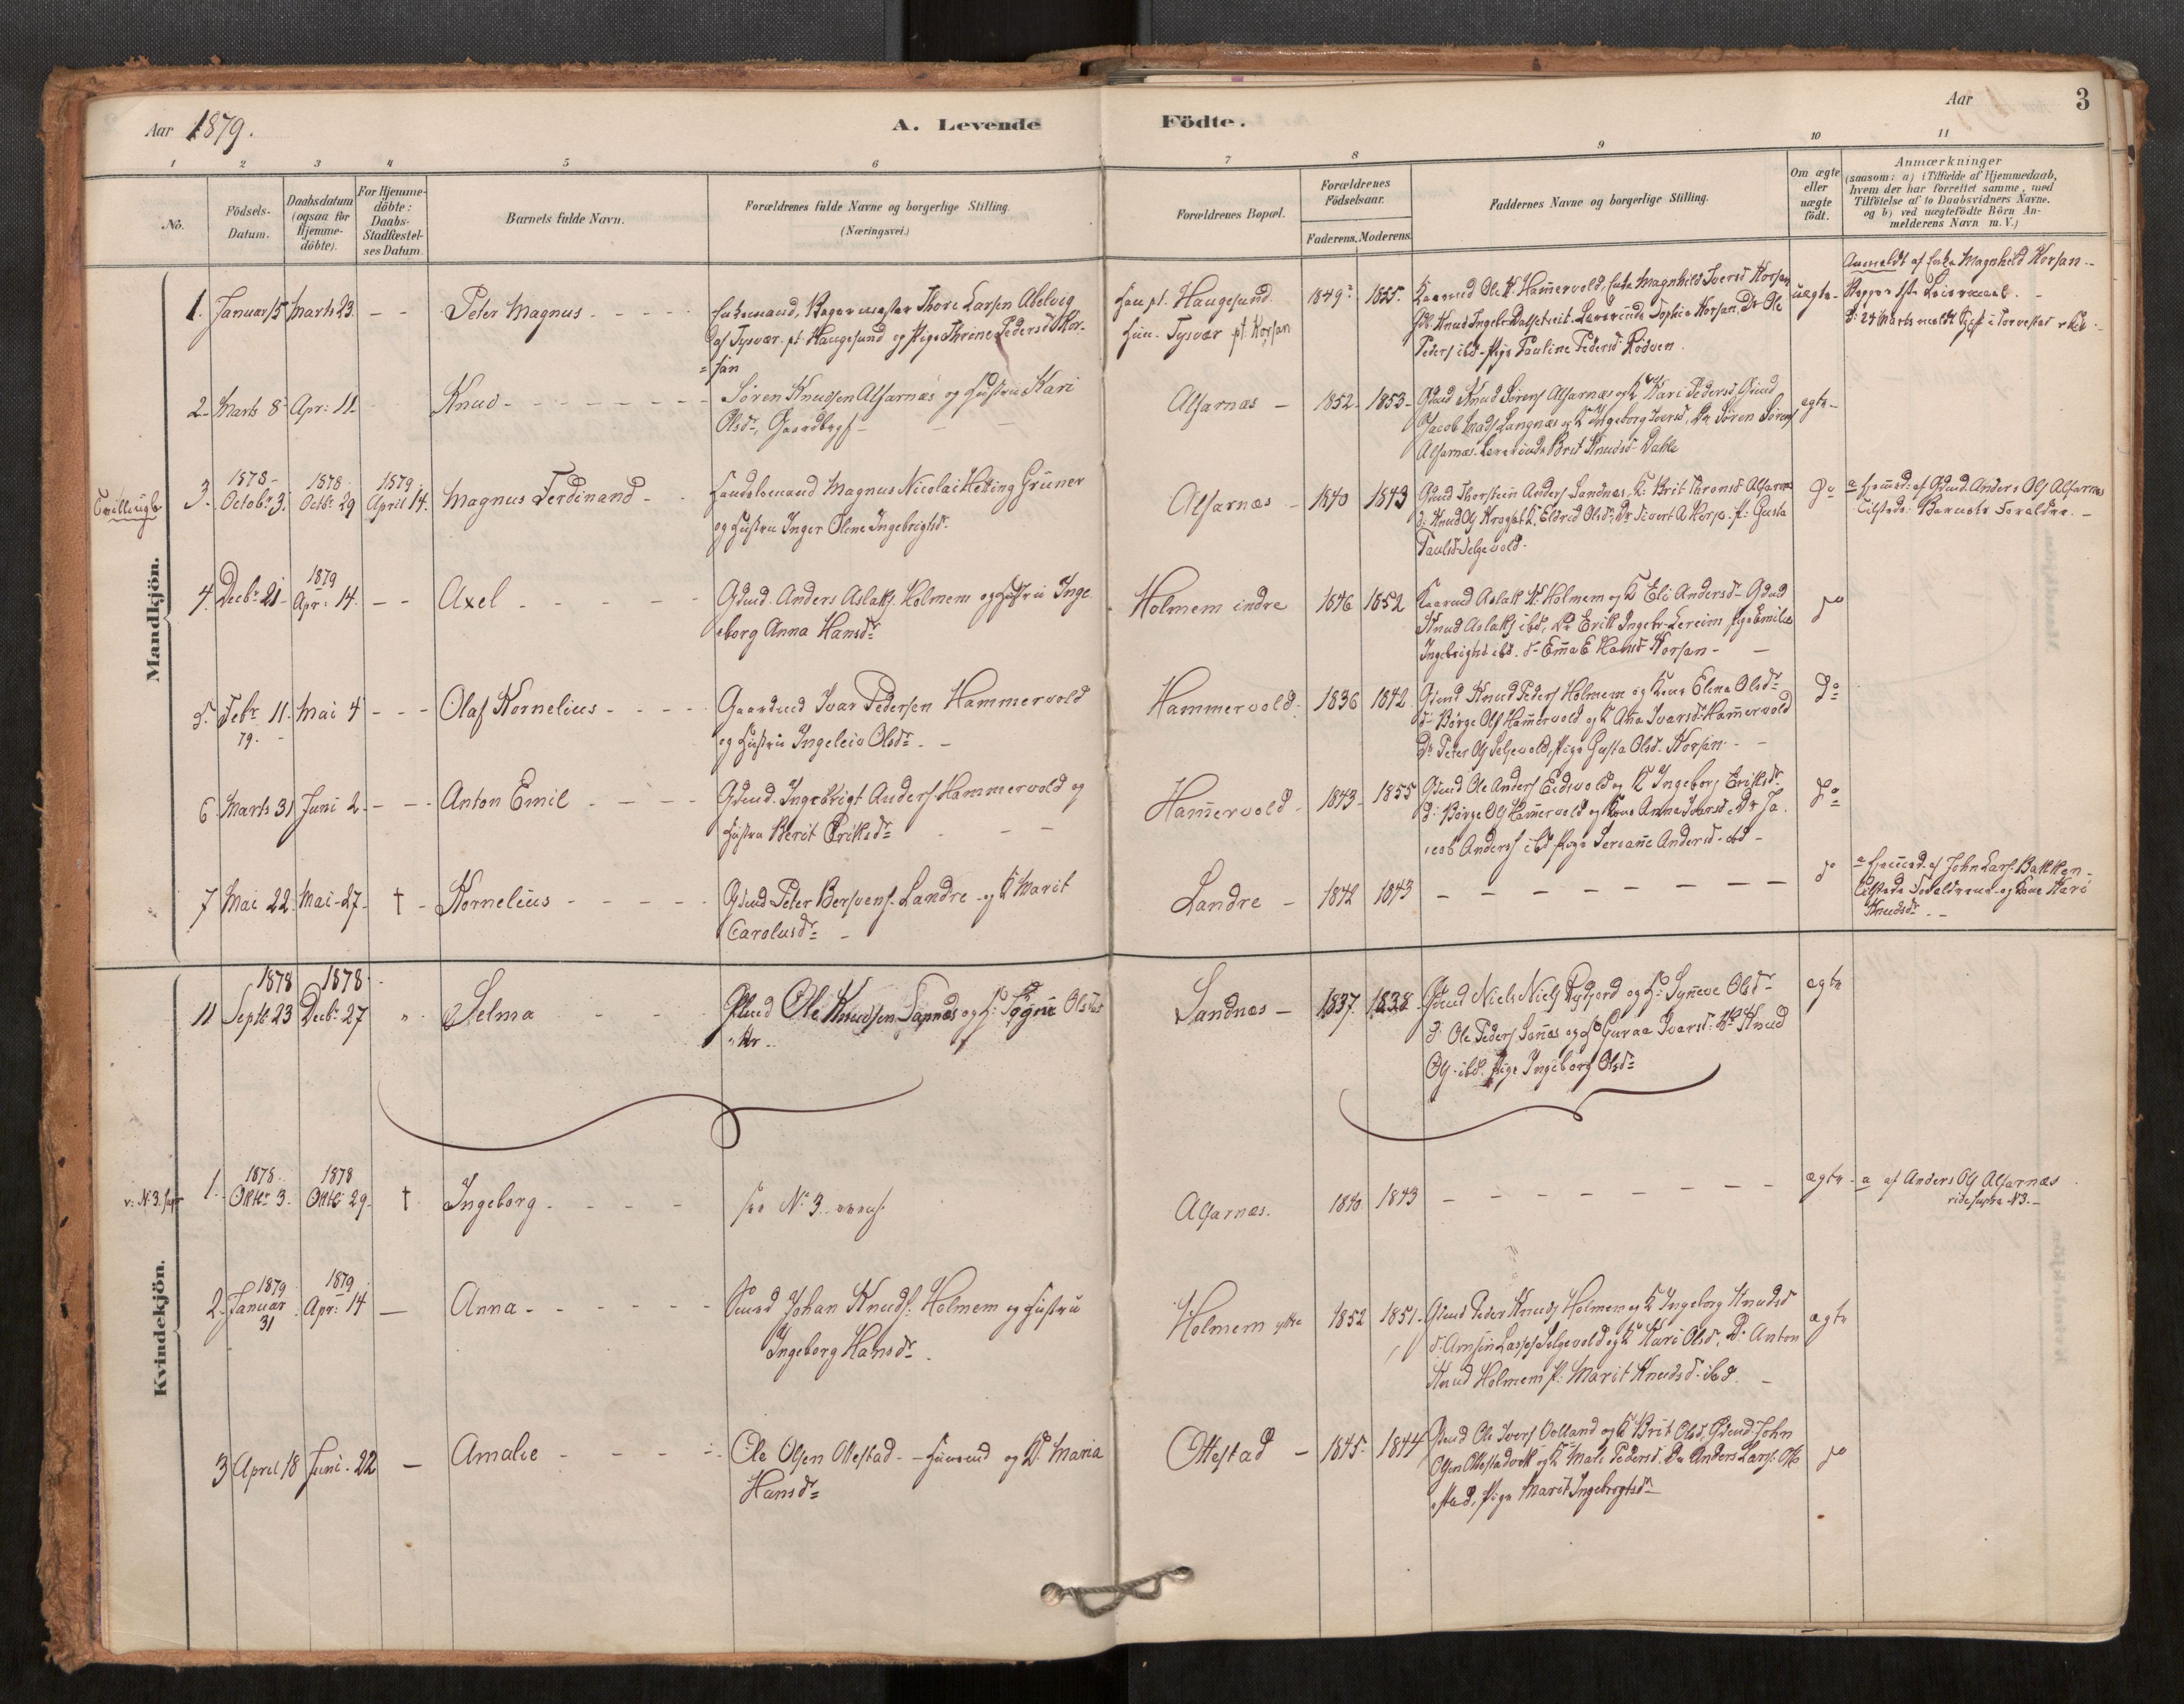 Aar 1879.
A. Levende
Födte.
Aar
3
1 2 3 4 5 6 7 8 9 10 11
No.
Födsels-
Datum.
Daabsdatum
(ogsaa for
Hjemme-
döbte).
For Hjemme-
döbte:
Daabs-
Stadfæstel-
ses Datum.
Barnets fulde Navn.
Forældrenes fulde Navne og borgerlige Stilling.
(Næringsvei.)
Forældrenes Bopæl.
Forældrenes
Födselsaar.
Faderens. Moderens.
Faddernes Navne og borgerlige Stilling.
Om ægte
eller
uægte
födt.
Anmærkninger
(saasom: a) i Tilfælde af Hjemmedaab,
hvem der har forrettet samme, med
Tilföielse af to Daabsvidners Navne.
og b) ved uægtefödte Börn An-
melderens Navn m. V.)
Mandkjön.
1. Januar 15 Marts 23. - - Peter Magnus - - - -
Enkemand, Thore Larsen Abelvig
af Tysvær. pt. Haugesund og Pige Thrine Pedersd. Kor-
=san
Han pt. Haugesund
Hun. Tysvær pt. Korsan
1849 1855.
Gaarmd Ole K. Hammervold, Enke Magnhild Iversd Korsan
Sophia Korsan, Dr Ole
Peders ibd. Pige Pauline Pedersd Rödven.
uægte-
Anmeldt af Enke Magnhild Korsan -
2. Marts 8 Apr: 11. Knud - - - - - -
Sören Knudsen Alfarnæs og Hustru Kari
Olsdr, Gaardbrgs -
Alfarnæs - 1852. 1853-
Gdmd Knud Sörens Alfarnæs og K Kari Pedersd, Gdmd
Jacob Mads Langnæs og K Ingeborg Iversd, Dr Sören Sörens
Alfarnæs. Brit Knudsd Dahle
ægte-
Tvillinge
3. 1878- Octobr 3. 1878. Octbr 29 1879 April 14. Magnus Ferdinand -
Handelsmand Magnus Nicolai Grüner
og Hustru Inger Oline Ingebrigtsdr.
Alfarnæs - 1840 1843
Gdmd Thorstein Anders Sandnæs, K: Brit Thronsd Alfarnæs
d: Knud Ols K. Eldrid Olsdr, Dr Sivert A Kors. P: Gusta
Paulsd Selgevold.
Do
a Hjemmed: af Gdmd. Anders Ols Alfarnæs
Tilstede: Barnets Forældre. -
4. Decbr 21 1879 Apr: 14. - - Axel - - - - -
Gdmd. Anders Aslaks. Holmem og Hustru Inge
eborg Anna Hansdr
Holmem indre 1846 1852
Gaarmd Aslak K. Holmem og K Eli Andersd Gdmd
Knud Aslaks ibd, Dr Erik Ingebr. Lereim Pige Emilie
Ingebrigtsd ibd. d- Emma E Hansd Korsan -
do
5. Febr 11. 79. Mai 4 - - - Olaf Kornelius - - -
Gaardmd Ivar Pedersen Hammervold
og Hustru Ingeleiv Olsdr. -
Hammervold. 1836 1842.
Gdmd Knud Peders Holmem og Kone Elena Olsdr
d- Börge Ols Hammervold og K Anna Ivarsd. Hammervold
Dr Peter Ols Selgevold, Pige Gusta Olsd. Korsan. -
Do
6 Marts 31 Juni 2. - - - Anton Emil - - -
Gdmd. Ingebrigt Anders Hammervold og
Hustru Berit Eriksdr
Hammervold - 1843 - 1855
Gdmd Ole Anders Eidsvold og K Ingeborg Eriksdr
d: Börge Ols Hammervold og Kone Anna Ivarsd. Dr Ja
cob Anders ibd Pige Serianne Andersd. ibd -
Do
7 Mai 22. Mai 27. † - Kornelius - - - -
Gdmd Peter Bersvens. Landre - og K Marit
Carolusdr -
Landre - 1842 1843 - - - - - - - - do
a Hjemmed. af John Lars. Bakken -
Tilstede Forældrene og Kone Kari
Knudsdr. -
11 1878 Septbr 23 1878. Decbr 27 " Selma - - -
Gdmd Ole Knudsen Sannæs og H: Sygni Olsdat
ter.
Sandnæs - 1837. 1838
Gdmd Niels Niels Rydjord og H: Synneve Olsdr
d: Ole Peders Sannæs og H Guroe Ivarsd. Knud
Ols. ibd. Pige Ingeborg Olsdr
ægte
Kvindekjön.
v: No 3. supr
1. 1878. Oktbr 3. 1878 Oktb. 29 † Ingeborg - - - -
see No 3.
Alfarnæs. 1840 1843 - - - - - - - - ægte -
a af Anders Ols Alfarnæs
vide supra N3. -
2. 1879 Januar 31 1879 Apr: 14 - Anna - - - - - -
Johan Knuds. Holmem og Hustru
Ingeborg Hansdr.
Holmem ytre 1852 1851.
Gdmd Peder Knuds Holmem og K Ingeborg Knudsd
d. Selgevold og K Kari Olsd, Dr Anton
Knud Holmem P: Marit Knudsd. ibd. -
ægte
3 April 18 Juni. 22 - Amalie - - - -
Ole Olsen Ottestad - og K. Maria
Hansdr
Ottestad - 1845. 1844
Gdmd Ole Ivers Volland og K Brit Olsd, Gdmd John
Olsen Ottestad og K Mali Pedersd. Dr Anders Lars. Otte
stad, Pige Marit Ingebrigtsdr
do